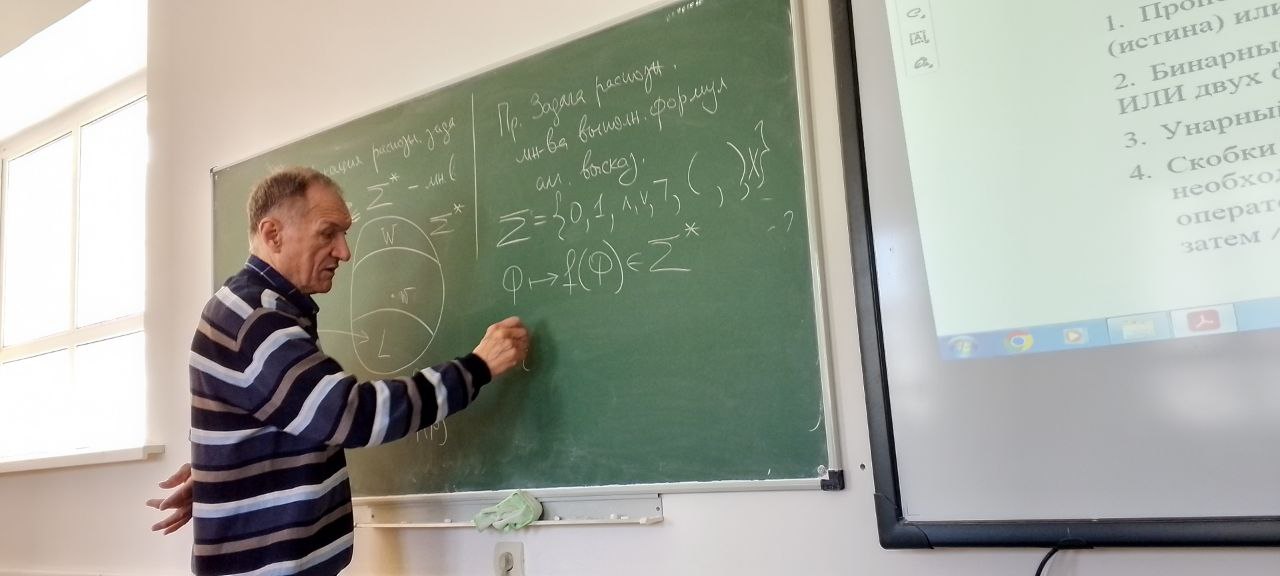 распозн. зада
Σ* - мн.(
Σ*
W
L
Пр. Задача распозн.
мн-ва выполн. формул
ал. высказ.
Σ = {0, 1, ∧, ∨, ¬, (, ), X}
- ?
Φ ↦ f(Φ) ∈ Σ*
(истина) или
2. Бинарные
ИЛИ двух ф
3. Унарный
4. Скобки
необход
операто
затем